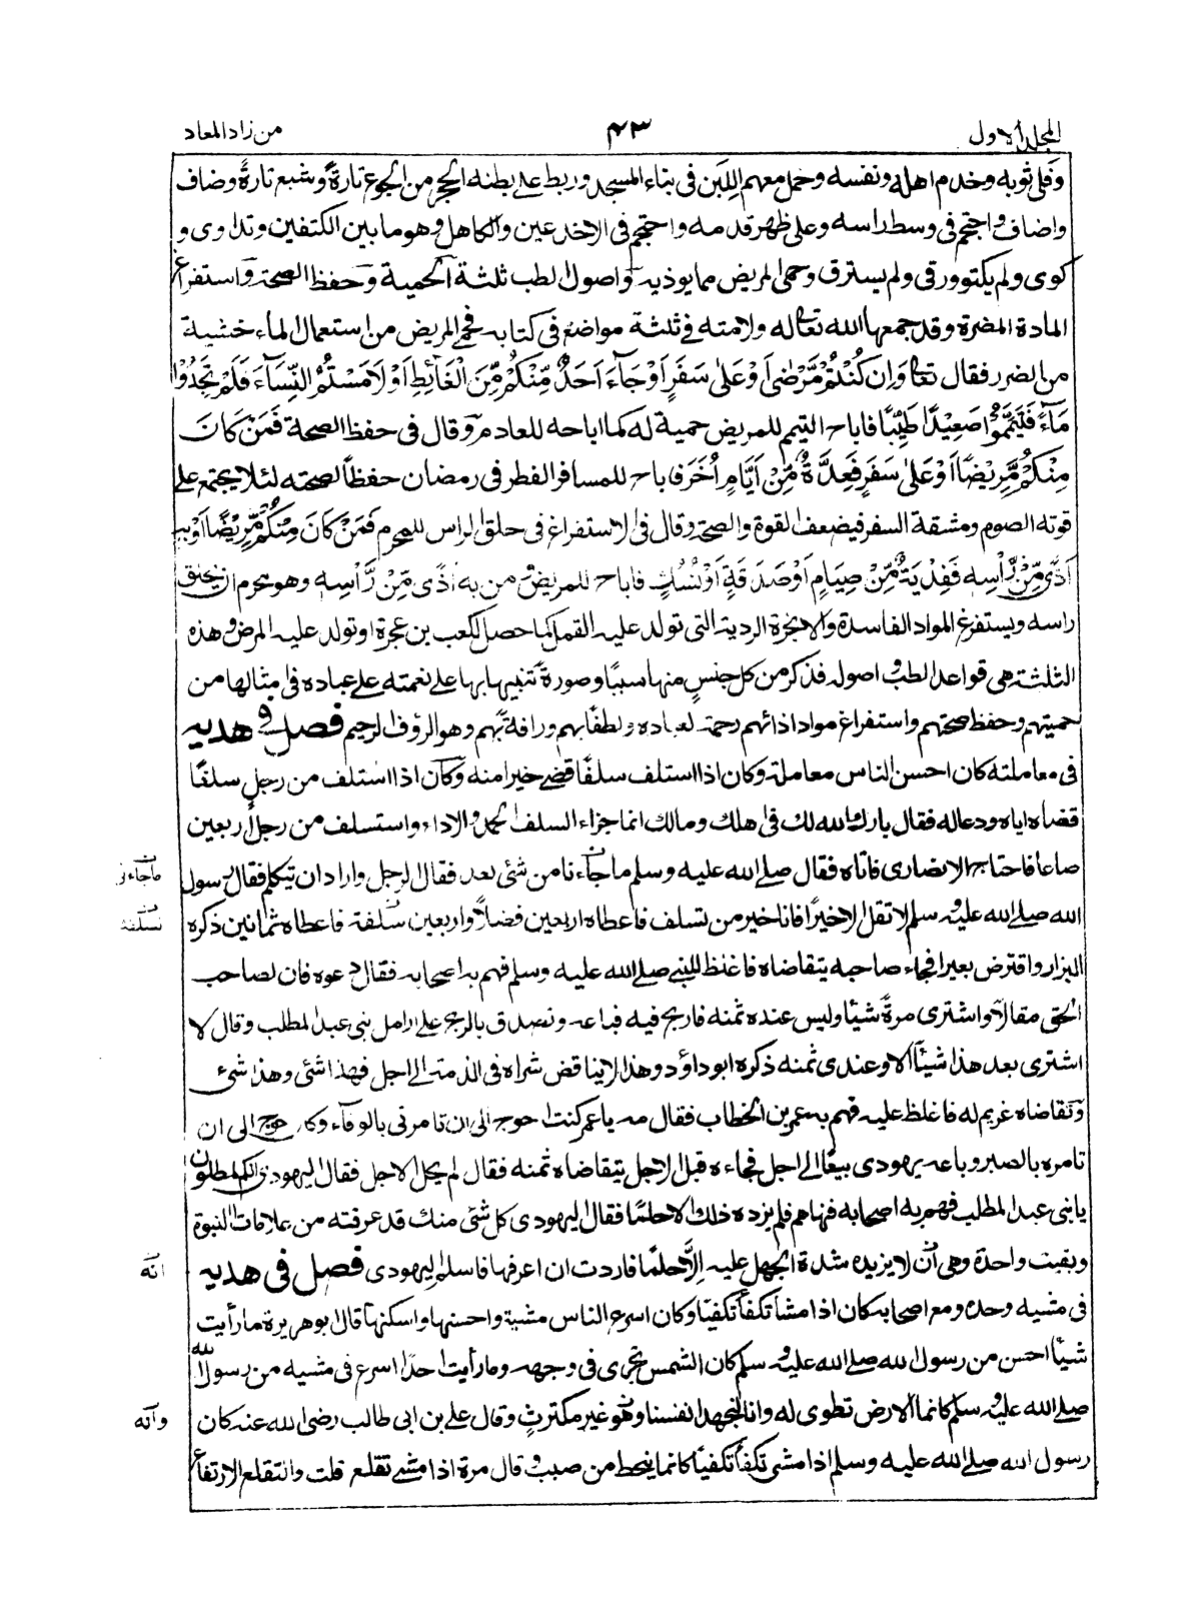 المجلد الاول
٤٣
من زاد المعاد
وفلى ثوبه وخدم اهله ونفسه وحمل معهم اللبن فى بناء المسجد وربط على بطنه الحجر من الجوع تارةً وشبع تارةً وضاف
واضاف واحتجم فى وسط راسه وعلى ظهر قدمه واحتجم فى الاخدعين والكاهل وهو ما بين الكتفين وتداوى و
كوى ولم يكتو ورقى ولم يسترق وحمى المريض مما يوذيه واصول الطب ثلثة الحمية وحفظ الصحة واستفراغ
المادة المضرة وقد جمعها الله تعالى له ولامته فى ثلثة مواضع فى كتابه فحمى المريض من استعمال الماء خشية
من الضرر فقال تعالى وَاِن كُنْتُمْ مَّرْضٰى اَوْ عَلٰى سَفَرٍ اَوْ جَآءَ اَحَدٌ مِّنكُمْ مِّنَ الْغَآئِطِ اَوْ لَامَسْتُمُ النِّسَآءَ فَلَمْ تَجِدُوْا
مَآءً فَتَيَمَّمُوْا صَعِيْدًا طَيِّبًا فاباح التيمم للمريض حمية له كما اباحه للعادم وقال فى حفظ الصحة فَمَنْ كَانَ
مِنْكُمْ مَّرِيْضًا اَوْ عَلٰى سَفَرٍ فَعِدَّةٌ مِّنْ اَيَّامٍ اُخَرَ فاباح للمسافر الفطر فى رمضان حفظاً لصحته لئلا يجتمع على
قوته الصوم ومشقة السفر فيضعف القوة والصحة وقال فى الاستفراغ فى حلق الراس للمحرم فَمَنْ كَانَ مِنْكُمْ مَّرِيْضًا اَوْ بِهٖ
اَذًى مِّنْ رَّاْسِهٖ فَفِدْيَةٌ مِّنْ صِيَامٍ اَوْ صَدَقَةٍ اَوْ نُسُكٍ فاباح للمريض ومن به اَذًى مِّنْ رَّاسِهٖ وهو محرم ان يحلق
راسه ويستفرغ المواد الفاسدة والابخرة الردية التى تولد عليه القمل كما حصل لكعب بن عجرة او تولد عليه المرض وهذه
الثلثة هى قواعد الطب واصوله فذكر من كل جنسٍ منها سببًا وصورةً تنبيها بها على نعمته على عباده فى امثالها من
حميتهم وحفظ صحتهم واستفراغ مواد اذائهم رحمة لعباده ولطفًا بهم ورافةً بهم وهو الرؤف الرحيم فصل فى هديه
فى معاملته كان احسن الناس معاملة وكان اذا استلف سلفًا قضى خيرا منه وكان اذا استلف من رجلٍ سلفًا
قضاه اياه ودعا له فقال بارك الله لك فى اهلك ومالك انما جزاء السلف الحمد والاداء واستسلف من رجل اربعين
صاعا فاحتاج الانصارى فاتاه فقال صلى الله عليه وسلم ما جاءنا من شئ بعد فقال الرجل واراد ان يتكلم فقال رسول
الله صلى الله عليه وسلم لا تقل الا خيرًا فانا خير من تسلف فاعطاه اربعين فضلاً واربعين سلفة فاعطاه ثمانين ذكره
البزار واقترض بعيرا فجاء صاحبه يتقاضاه فاغلظ للنبى صلى الله عليه وسلم فهم به اصحابه فقال دعوه فان لصاحب
الحق مقالاً واشترى مرةً شيئًا وليس عنده ثمنه فاربح فيه فباعه وتصدق بالربح على ارامل بنى عبد المطلب وقال لا
اشترى بعد هذا شيئًا الا وعندى ثمنه ذكره ابو داؤد وهذا لا يناقض شراه فى الذمة الى اجل فهذا شئ وهذا شئ
وتقاضاه غريم له فاغلظ عليه فهم به عمر بن الخطاب فقال مه يا عمر كنت احوج الى ان تامرنى بالوفاء وكان احوج الى ان
تامره بالصبر وباعه يهودى بيعًا الى اجل فجاءه قبل الاجل يتقاضاه ثمنه فقال لم يحل الاجل فقال اليهودى انكم لمطلون
يا بنى عبد المطلب فهم به اصحابه فنهاهم فلم يزده ذلك الا حلمًا فقال اليهودى كل شئ منك قد عرفته من علامات النبوة
وبقيت واحدة وهى ان لا يزيده شدة الجهل عليه اِلَّا حلمًا فاردت ان اعرفها فاسلم اليهودى فصل فى هديه
فى مشيه وحده ومع اصحابه كان اذا مشى تكفأ تكفيًا وكان اسرع الناس مشية واحسنها واسكنها قال ابو هريرة ما رأيت
شيئًا احسن من رسول الله صلى الله عليه وسلم كان الشمس تجرى فى وجهه وما رأيت احدا اسرع فى مشيه من رسول الله
صلى الله عليه وسلم كانما الارض تطوى له وانا لنجهد انفسنا وهو غير مكترثٍ وقال على بن ابى طالب رضى الله عنه كان
رسول الله صلى الله عليه وسلم اذا مشى تكفأ تكفيًا كانما ينحط من صببٍ وقال مرة اذا مشى تقلع قلت والتقلع الارتفاع
نسلفه
انه
وانه